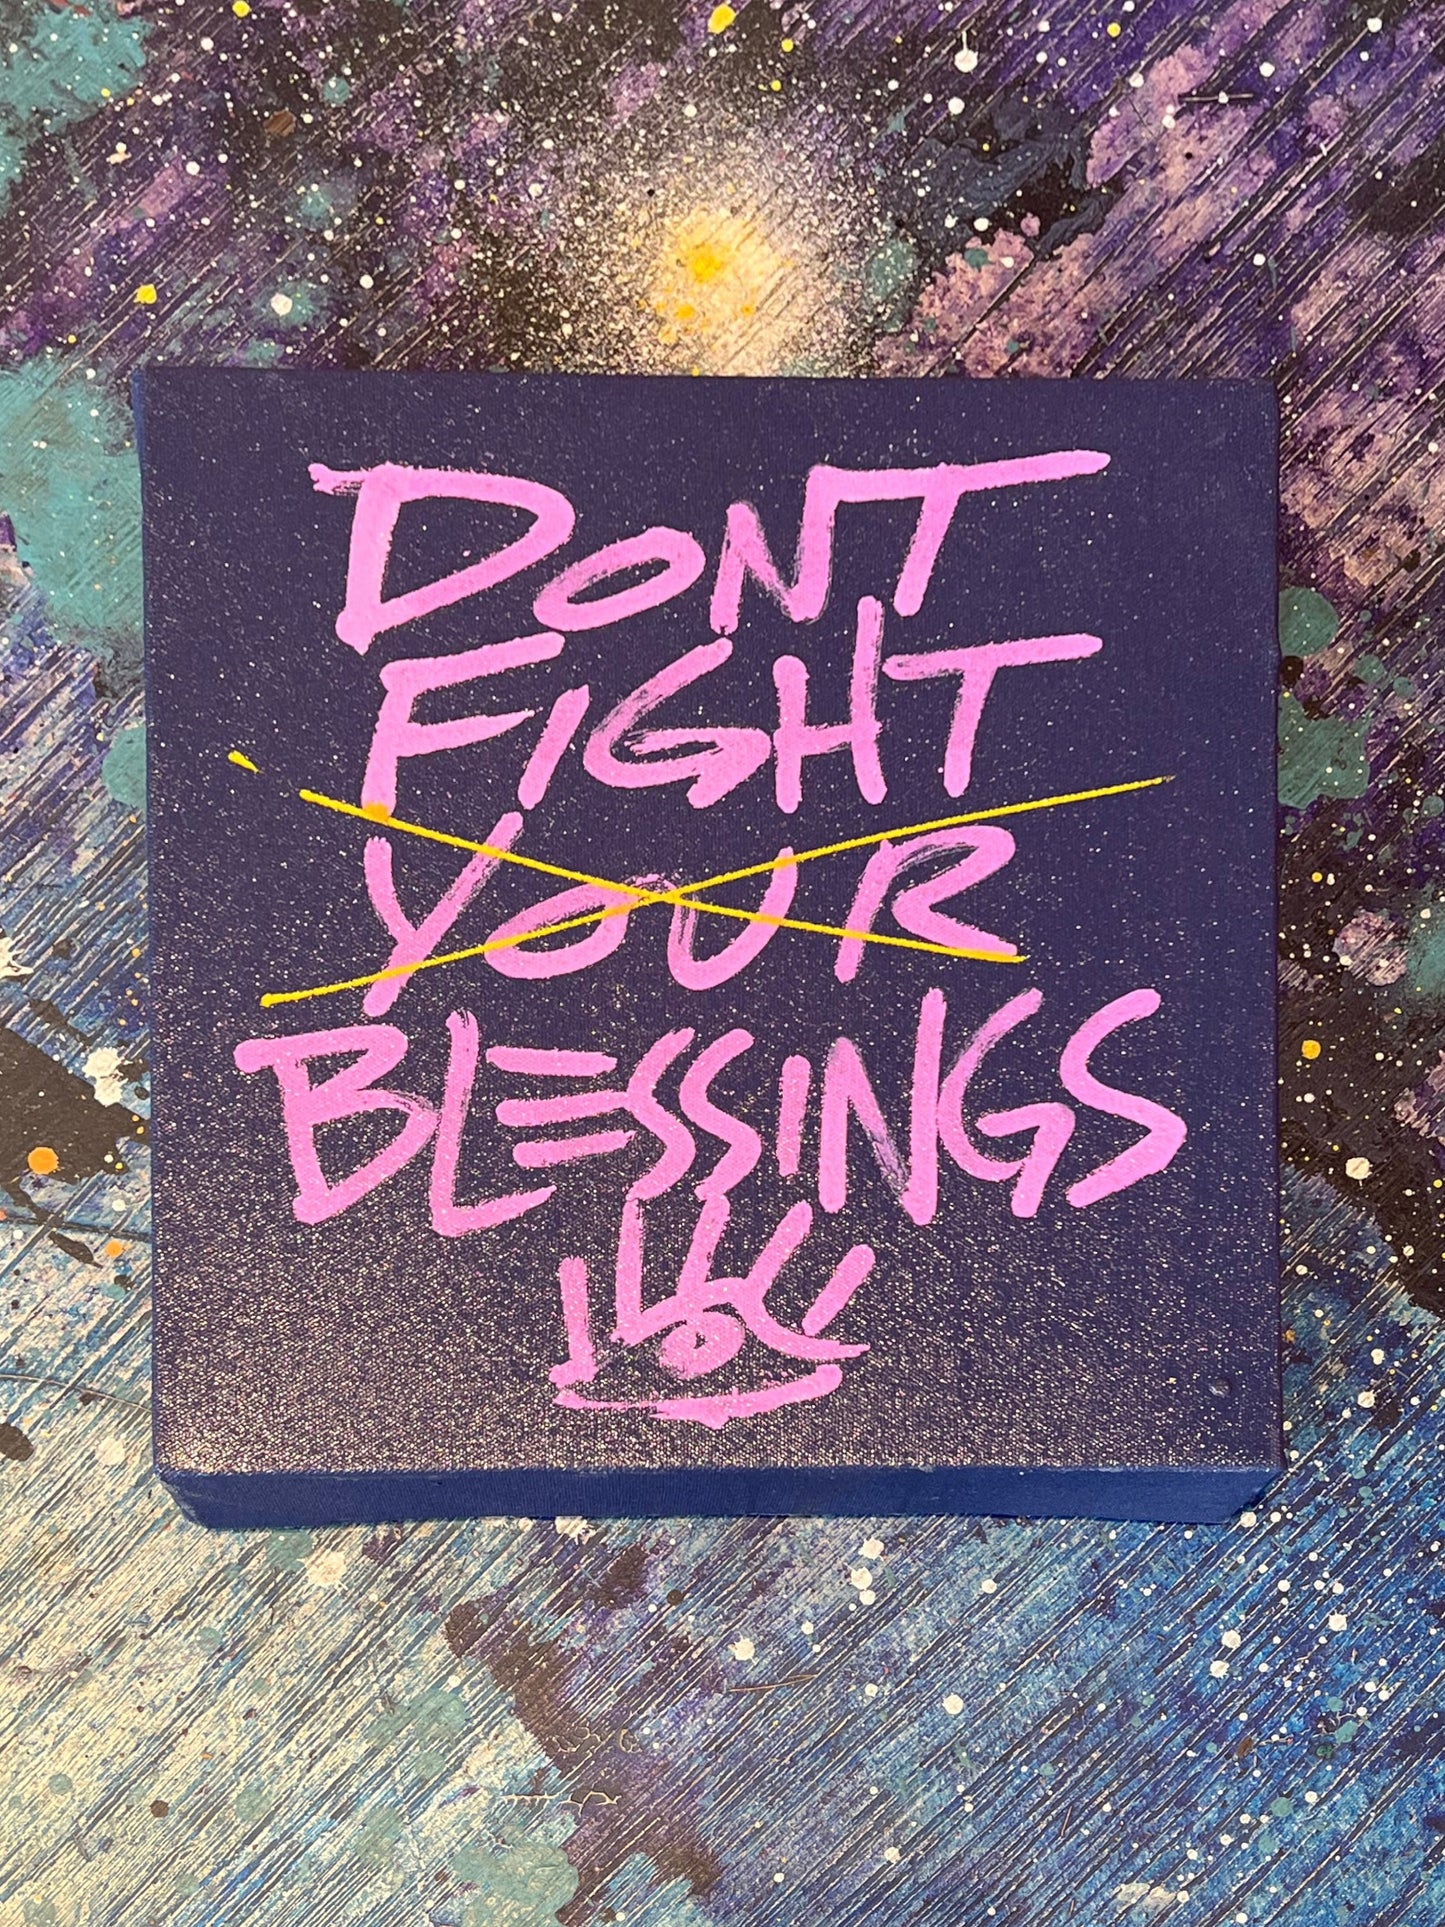 DONT
FIGHT
YOUR
BLESSINGS